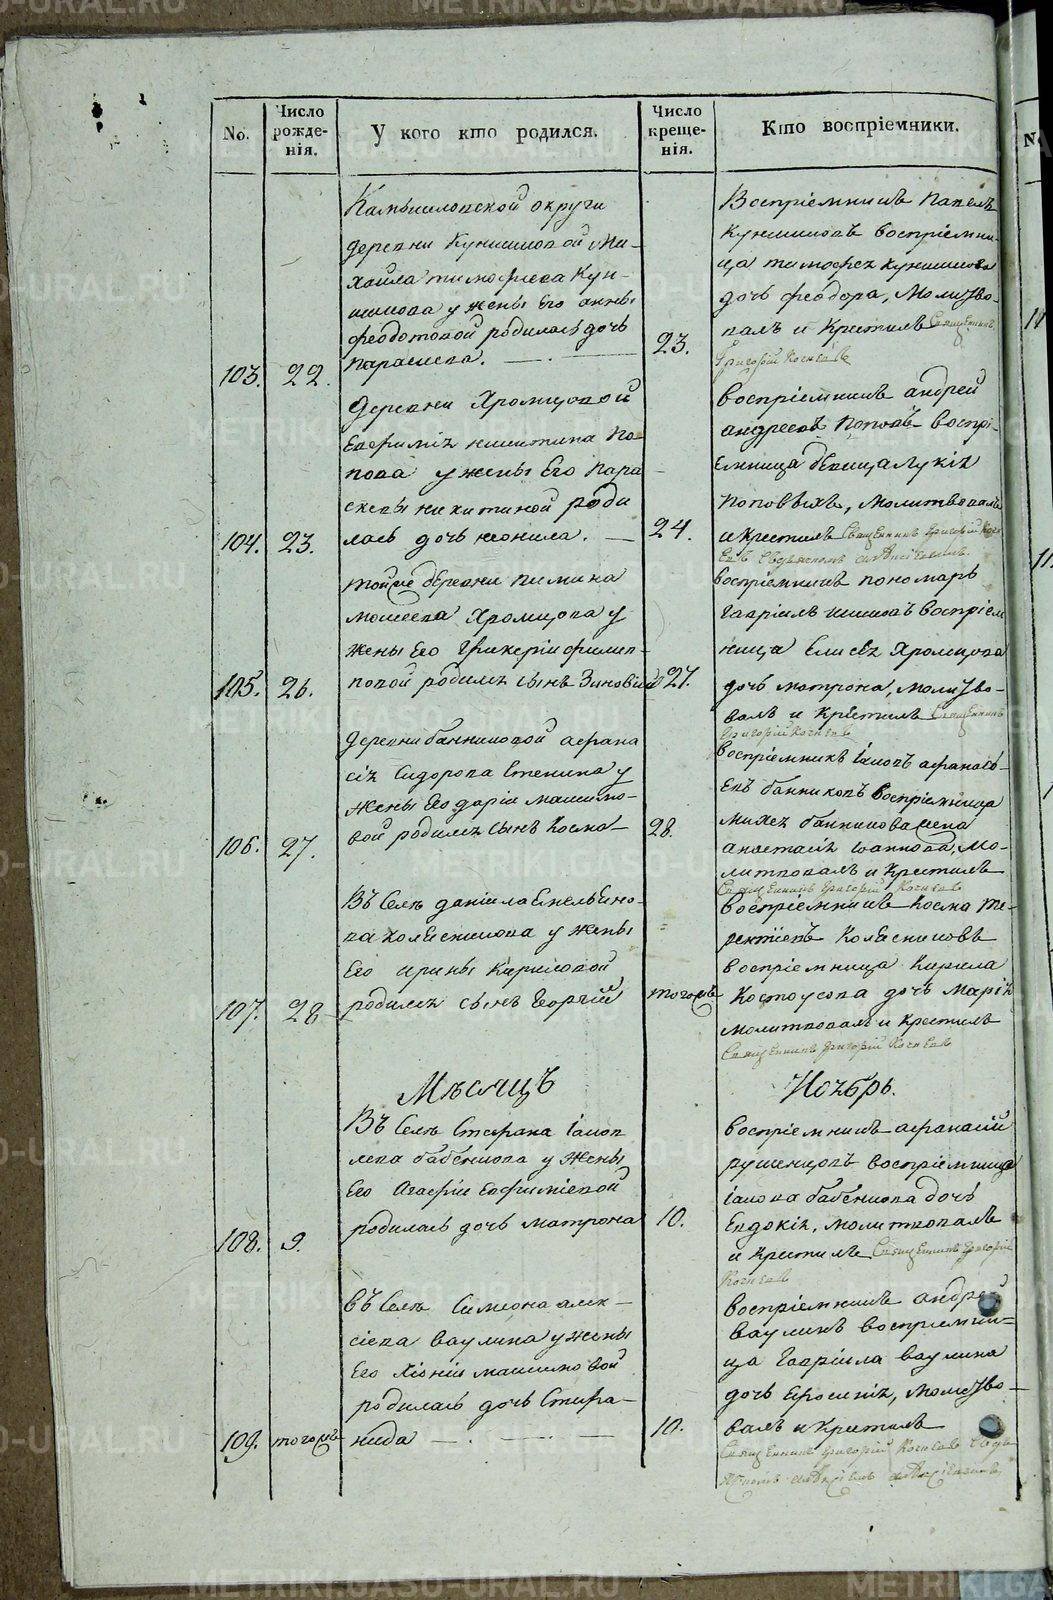 No.
Число рожде-нія.
У кого кто родился.
Число креще-нія.
Кто воспріемники.
103.
22.
Камышловской округи
деревни Куншиновой Ми-
хаила тимофеева Кун-
шинова у жены Его анны
феодотовой родилась дочь
параскева.
23.
Воспріемникъ Павелъ
Куншиновъ воспріемни-
ца тимофея куншинова
дочь феодора, Молитво-
валъ и Крестилъ Священникъ
Григорій
104.
23.
Деревни Хромцовой
Евфимія никитина По-
пова у жены Его Пара
скевы никитиной роди
лась дочь неонила.
24.
воспріемникъ андрей
андреевъ Поповъ воспрі-
емница девица Лукія
Поповыхъ, молитвовалъ
и крестилъ Священникъ Григорій
105.
26.
тойже деревни пимина
моисеева Хромцова у
жены Его Гликеріи филип-
повой родился сынъ Зиновій
27.
воспріемникъ пономарь
Гавріилъ воспріем
ница Елисея Хромцова
дочь матрона, молитво-
валъ и крестилъ Священникъ
Григорій
106.
27.
Деревни банниковой афана
сія Сидорова Стенина у
жены Его даріи максимо-
вой родился сынъ Косма
28.
воспріемникъ Іаковъ афанась-
евъ банниковъ воспріемница
михея банникова жена
анастасія іоаннова, Мо-
литвовалъ и Крестилъ
Священникъ Григорій
107.
28
Въ Селе даніила Емельяно-
ва Колесникова у жены
Его ирины Кириловой
родился сынъ Георгій
тогожъ
воспріемникъ Косма те-
рентіевъ Колесниковъ
воспріемница Кирила
Костоусова дочь Марія
молитвовалъ и крестилъ
Священникъ Григорій
Мѣсяцъ
Ноябрь.
108.
9.
Въ Селе Стефана Іаков
лева бабенкова у жены
Его Агафіи Евфиміевой
родилась дочь матрона
10.
воспріемникъ афанасій
рушенцовъ воспріемница
Іакова бабенкова дочь
Евдокія, молитвовалъ
и крестилъ Священникъ Григорій
109.
тогожъ
въ Селе Симеона алек-
сіева ваулина у жены
Его Хіоніи максимовой
родилась дочь Стефа-
нида
10.
воспріемникъ андрей
ваулинъ воспріемни-
ца Гавріила ваулина
дочь Ефросинія, молитво-
валъ и Крестилъ
Священникъ Григорій
METRIKI.GASO-URAL.RU